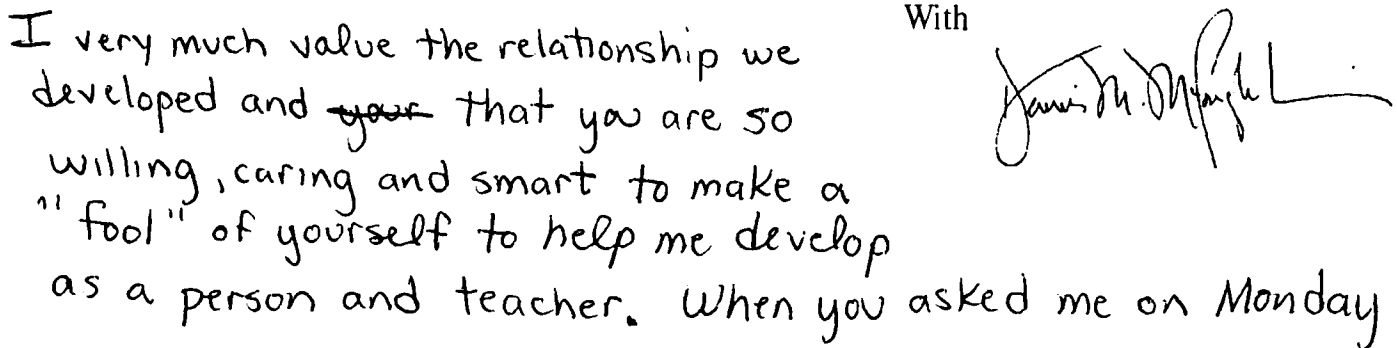 I very much value the relationship we
developed and your that you are so
willing, caring and smart to make a
"fool" of yourself to help me develop
as a person and teacher. When you asked me on Monday
With